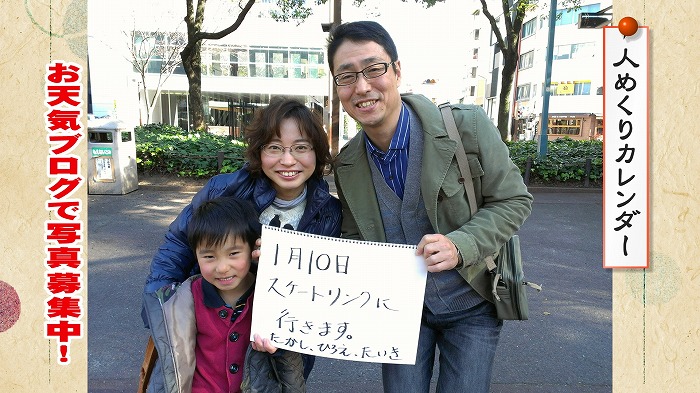 人めくりカレンダー
お天気ブログで写真募集中!
1月10日
スケートリンクに
行きます。
たかし、ひろえ、たいき